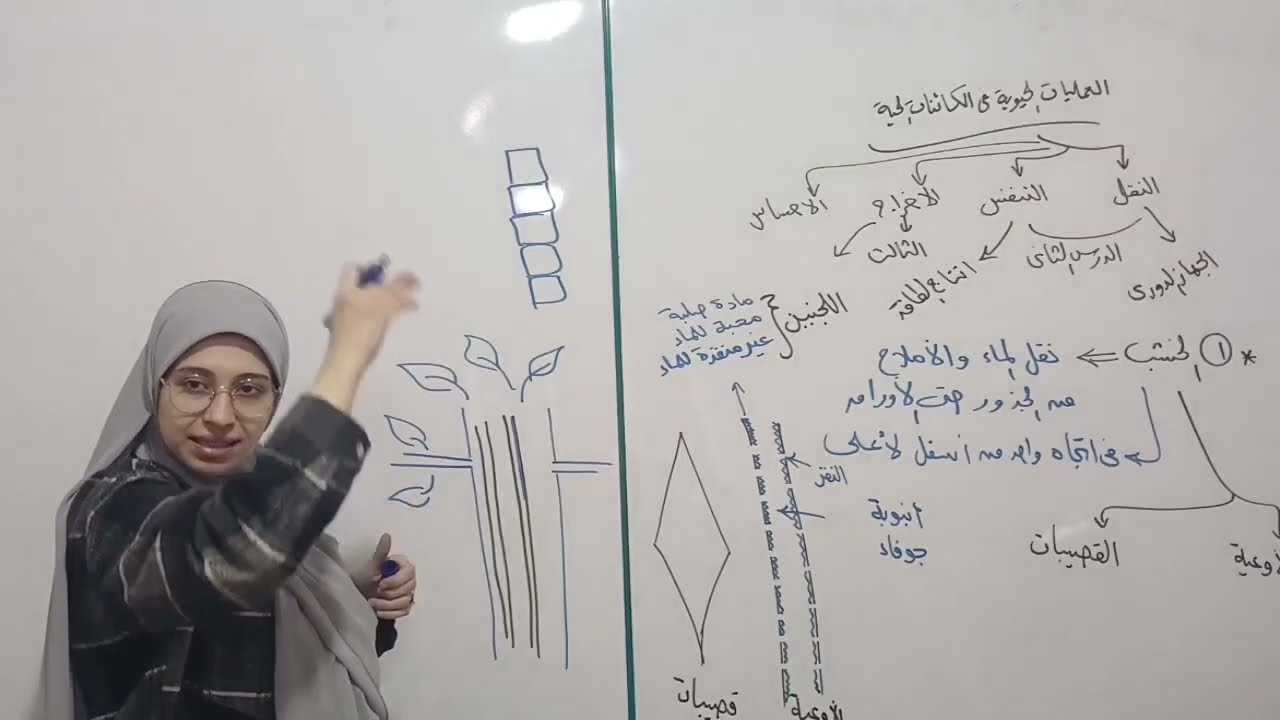 العمليات الحيوية في الكائنات الحية
النقل
التنفس
الأخراج
الاحساس
الجهاز الدورى
الدرس الثانى
انتاج لطاقة
الثالث
اللجنين
مادة صلبة
محبة للماء
غير منفذة للماء
* ① الخشب ⇐ نقل الماء والأملاح
من الجذور حتى الأوراق
فى اتجاه واحد من أسفل لأعلى
النقر
أنبوبة
جوفاء
القصيبات
الأوعية
قصيبات
الأوعية